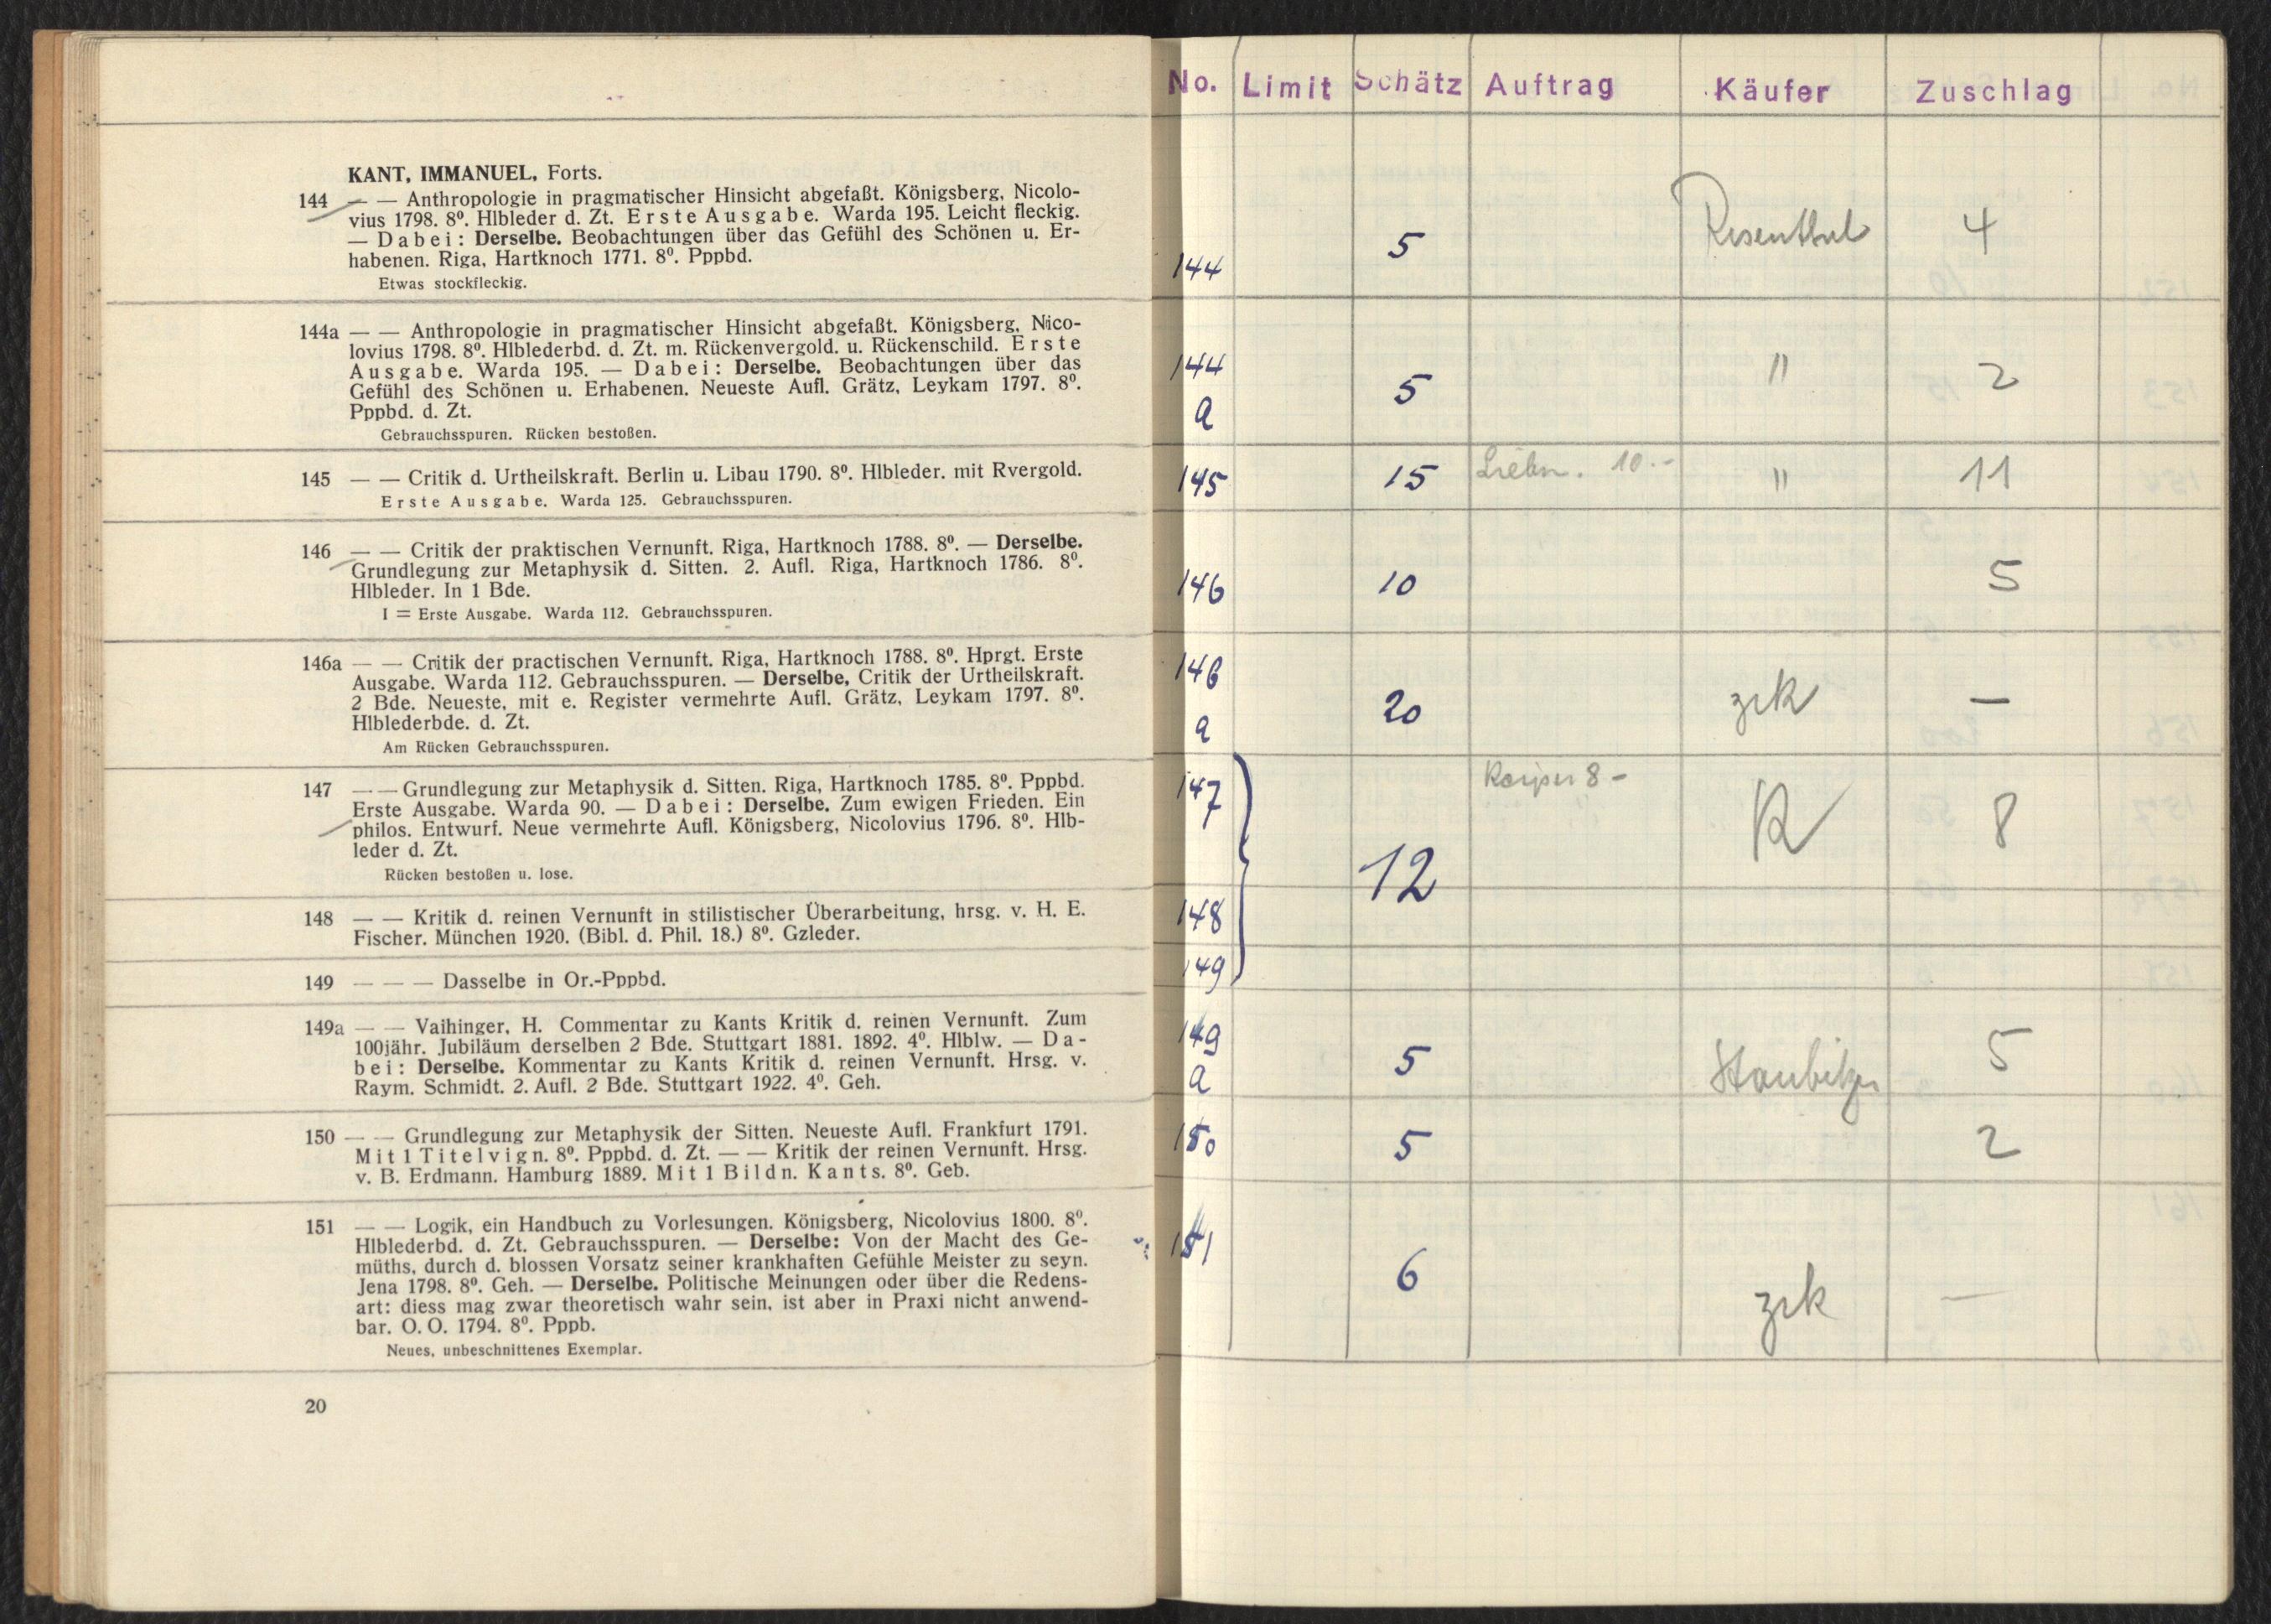 KANT, IMMANUEL, Forts.
144 — — Anthropologie in pragmatischer Hinsicht abgefaßt. Königsberg, Nicolo-
vius 1798. 8⁰. Hlbleder d. Zt. Erste Ausgabe. Warda 195. Leicht fleckig.
— Dabei: Derselbe. Beobachtungen über das Gefühl des Schönen u. Er-
habenen. Riga, Hartknoch 1771. 8⁰. Pppbd.
Etwas stockfleckig.
144a — — Anthropologie in pragmatischer Hinsicht abgefaßt. Königsberg, Nico-
lovius 1798. 8⁰. Hlblederbd. d. Zt. m. Rückenvergold. u. Rückenschild. Erste
Ausgabe. Warda 195. — Dabei: Derselbe. Beobachtungen über das
Gefühl des Schönen u. Erhabenen. Neueste Aufl. Grätz, Leykam 1797. 8⁰.
Pppbd. d. Zt.
Gebrauchsspuren. Rücken bestoßen.
145 — — Critik d. Urtheilskraft. Berlin u. Libau 1790. 8⁰. Hlbleder. mit Rvergold.
Erste Ausgabe. Warda 125. Gebrauchsspuren.
146 — — Critik der praktischen Vernunft. Riga, Hartknoch 1788. 8⁰. — Derselbe.
Grundlegung zur Metaphysik d. Sitten. 2. Aufl. Riga, Hartknoch 1786. 8⁰.
Hlbleder. In 1 Bde.
I = Erste Ausgabe. Warda 112. Gebrauchsspuren.
146a — — Critik der practischen Vernunft. Riga, Hartknoch 1788. 8⁰. Hprgt. Erste
Ausgabe. Warda 112. Gebrauchsspuren. — Derselbe, Critik der Urtheilskraft.
2 Bde. Neueste, mit e. Register vermehrte Aufl. Grätz, Leykam 1797. 8⁰.
Hlblederbde. d. Zt.
Am Rücken Gebrauchsspuren.
147 — — Grundlegung zur Metaphysik d. Sitten. Riga, Hartknoch 1785. 8⁰. Pppbd.
Erste Ausgabe. Warda 90. — Dabei: Derselbe. Zum ewigen Frieden. Ein
philos. Entwurf. Neue vermehrte Aufl. Königsberg, Nicolovius 1796. 8⁰. Hlb-
leder d. Zt.
Rücken bestoßen u. lose.
148 — — Kritik d. reinen Vernunft in stilistischer Überarbeitung, hrsg. v. H. E.
Fischer. München 1920. (Bibl. d. Phil. 18.) 8⁰. Gzleder.
149 — — — Dasselbe in Or.-Pppbd.
149a — — Vaihinger, H. Commentar zu Kants Kritik d. reinen Vernunft. Zum
100jähr. Jubiläum derselben 2 Bde. Stuttgart 1881. 1892. 4⁰. Hlblw. — Da-
bei: Derselbe. Kommentar zu Kants Kritik d. reinen Vernunft. Hrsg. v.
Raym. Schmidt. 2. Aufl. 2 Bde. Stuttgart 1922. 4⁰. Geh.
150 — — Grundlegung zur Metaphysik der Sitten. Neueste Aufl. Frankfurt 1791.
Mit 1 Titelvign. 8⁰. Pppbd. d. Zt. — — Kritik der reinen Vernunft. Hrsg.
v. B. Erdmann. Hamburg 1889. Mit 1 Bildn. Kants. 8⁰. Geb.
151 — — Logik, ein Handbuch zu Vorlesungen. Königsberg, Nicolovius 1800. 8⁰.
Hlblederbd. d. Zt. Gebrauchsspuren. — Derselbe: Von der Macht des Ge-
müths, durch d. blossen Vorsatz seiner krankhaften Gefühle Meister zu seyn.
Jena 1798. 8⁰. Geh. — Derselbe. Politische Meinungen oder über die Redens-
art: diess mag zwar theoretisch wahr sein, ist aber in Praxi nicht anwend-
bar. O. O. 1794. 8⁰. Pppb.
Neues, unbeschnittenes Exemplar.
20
No. Limit Schätz Auftrag Käufer Zuschlag
144 5 Rosenthal 4
144 a 5 " 2
145 15 10.- " 11
146 10 5
146 a 20 zrk —
147 8 - R 8
12
148
149
149 a 5 5
150 5 2
151 6 zrk —